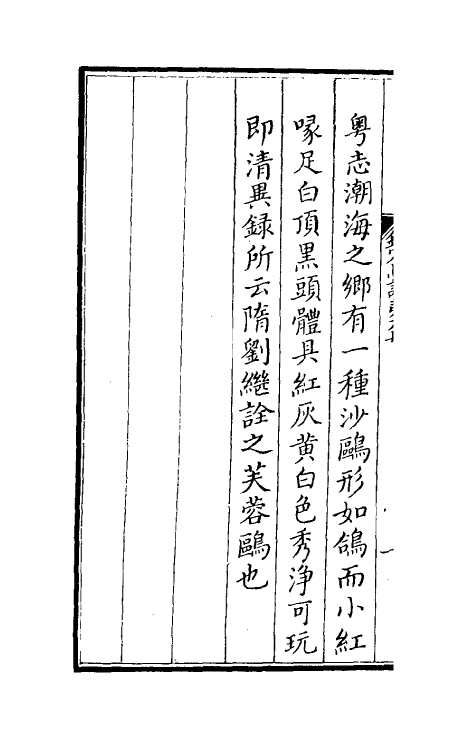 粤志潮海之鄉有一種沙鷗形如鴿而小紅
喙足白頂黑頭體具紅灰黄白色秀浄可玩
即清異録所云隋劉繼詮之芙蓉鷗也